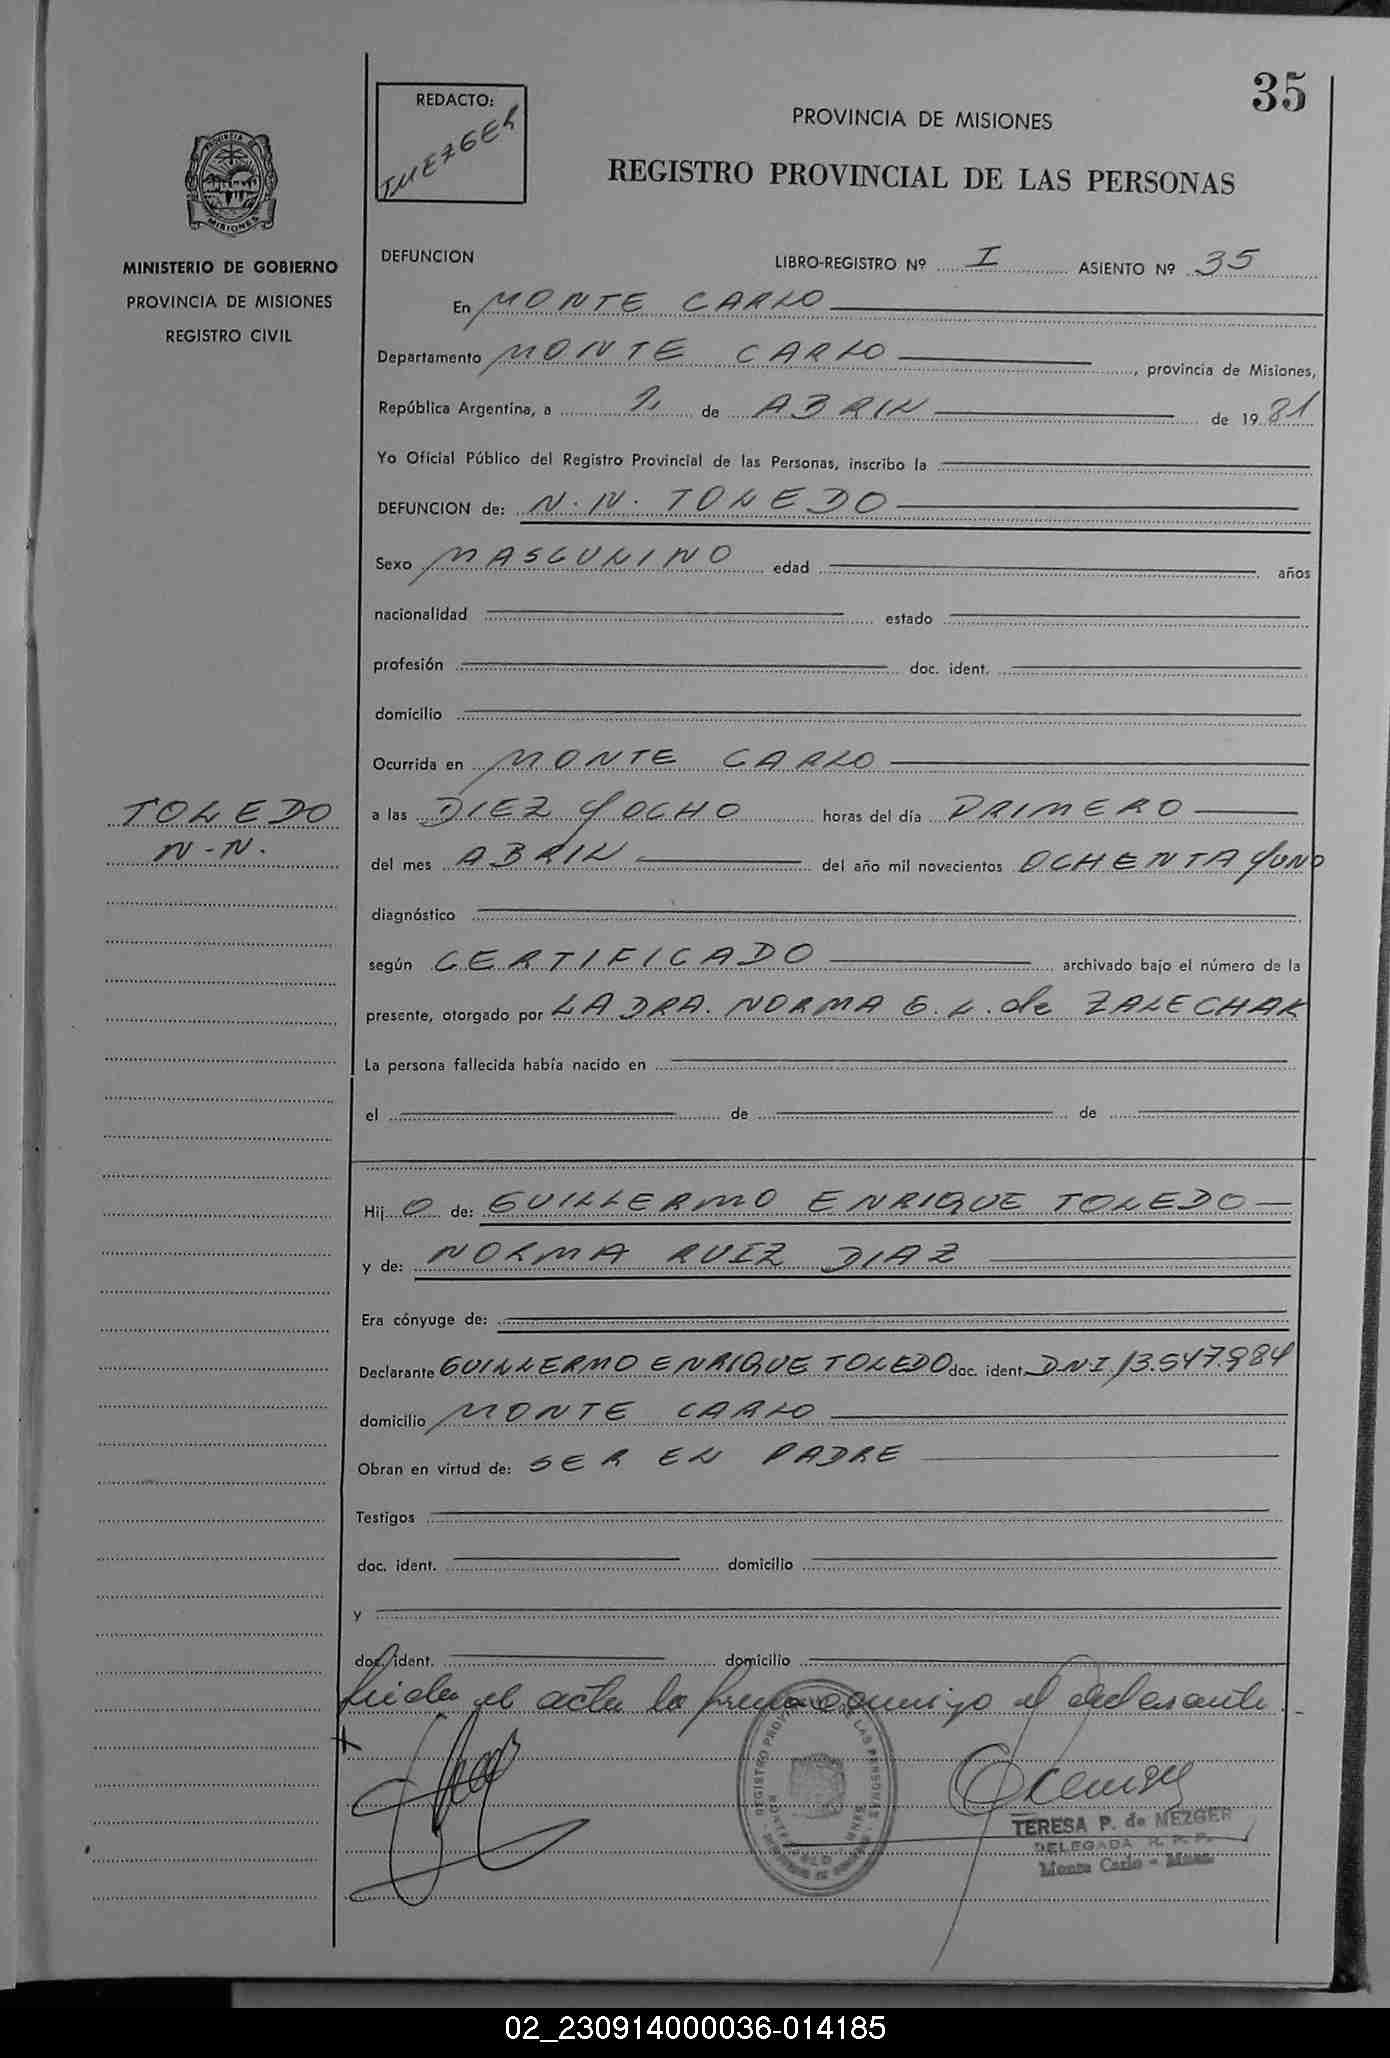 35
REDACTO:
MEZGER
PROVINCIA DE MISIONES
REGISTRO PROVINCIAL DE LAS PERSONAS
PROVINCIA DE
MISIONES
MINISTERIO DE GOBIERNO
PROVINCIA DE MISIONES
REGISTRO CIVIL
DEFUNCION LIBRO-REGISTRO Nº I ASIENTO Nº 35
En MONTE CARLO
Departamento MONTE CARLO, provincia de Misiones,
República Argentina, a 2 de ABRIL de 1981
Yo Oficial Público del Registro Provincial de las Personas, inscribo la
DEFUNCION de: N.N. TOLEDO
Sexo MASCULINO edad años
nacionalidad estado
profesión doc. ident.
domicilio
Ocurrida en MONTE CARLO
TOLEDO
N-N.
a las DIEZ y OCHO horas del día PRIMERO
del mes ABRIL del año mil novecientos OCHENTA y UNO
diagnóstico
según CERTIFICADO archivado bajo el número de la
presente, otorgado por LA DRA. NORMA E. L. de ZALECHAK
La persona fallecida había nacido en
el de de
Hij O de: GUILLERMO ENRIQUE TOLEDO
y de: NORMA RUIZ DIAZ
Era cónyuge de:
Declarante GUILLERMO ENRIQUE TOLEDO doc. ident. D.N.I. 13.547.984
domicilio MONTE CARLO
Obran en virtud de: SER EL PADRE
Testigos
doc. ident. domicilio
y
doc. ident. domicilio
Leida el acta la firma conmigo el declarante.-
TERESA P. de MEZGER
DELEGADA R. P. P.
Monte Carlo - Mnes.
02_230914000036-014185